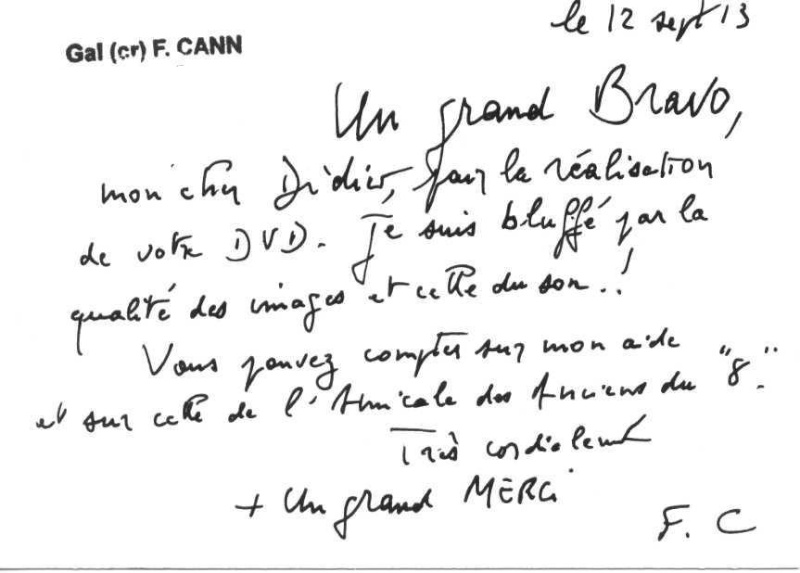 le 12 sept 13
Gal (cr) F. CANN
Un grand Bravo,
mon cher Didier, pour la réalisation
de votre DVD. Je suis bluffé par la
qualité des images et celle du son..!
Vous pouvez compter sur mon aide
et sur celle de l'Amicale des Anciens du "8".
Très cordialement
+ Un grand MERCI
F. C